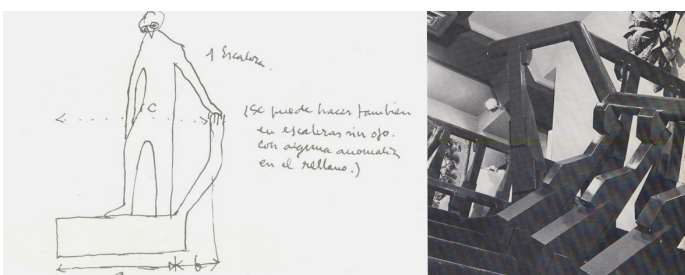 1 Escalera.
c
(Se puede hacer también
en escaleras sin ojo.
con alguna anomalía
en el rellano.)
a b